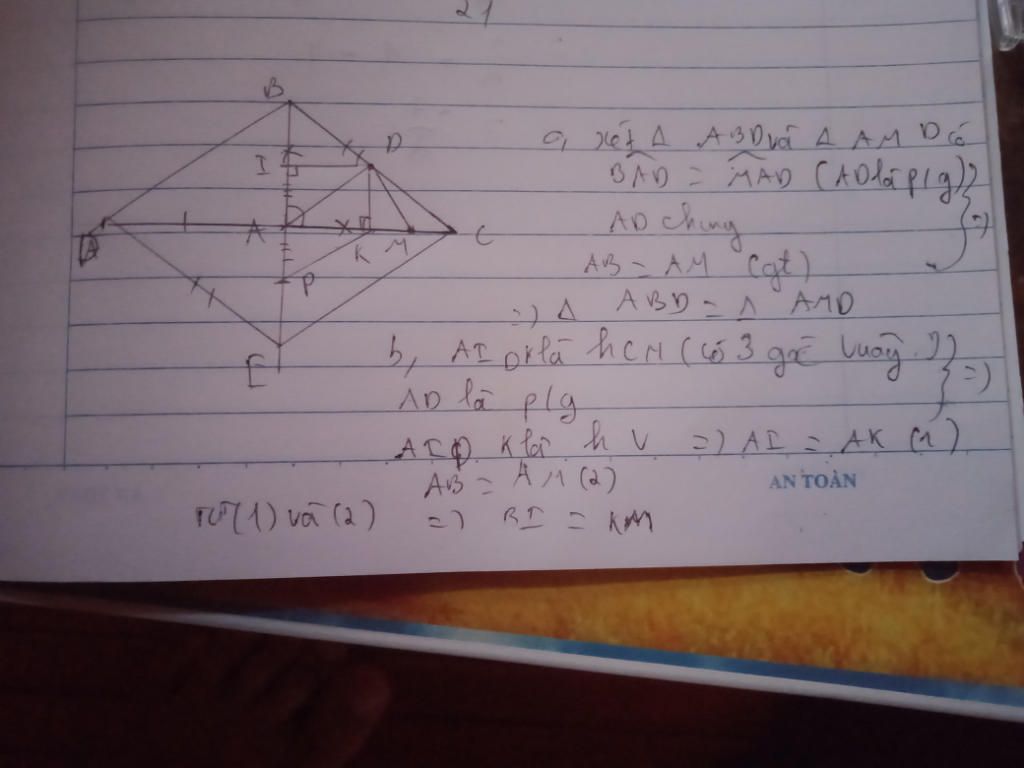 21
B
D
I
A
K
M
C
P
E
a, xét Δ ABD và Δ AMD có
BAD = MAD (AD là p/g)
AD chung
AB = AM (gt)
=> Δ ABD = Δ AMD
b, AIDK là hCN (có 3 góc vuông)
AD là p/g
AIDK là hV => AI = AK (1)
AB = AM (2)
AN TOÀN
Từ (1) và (2) => BI = KM